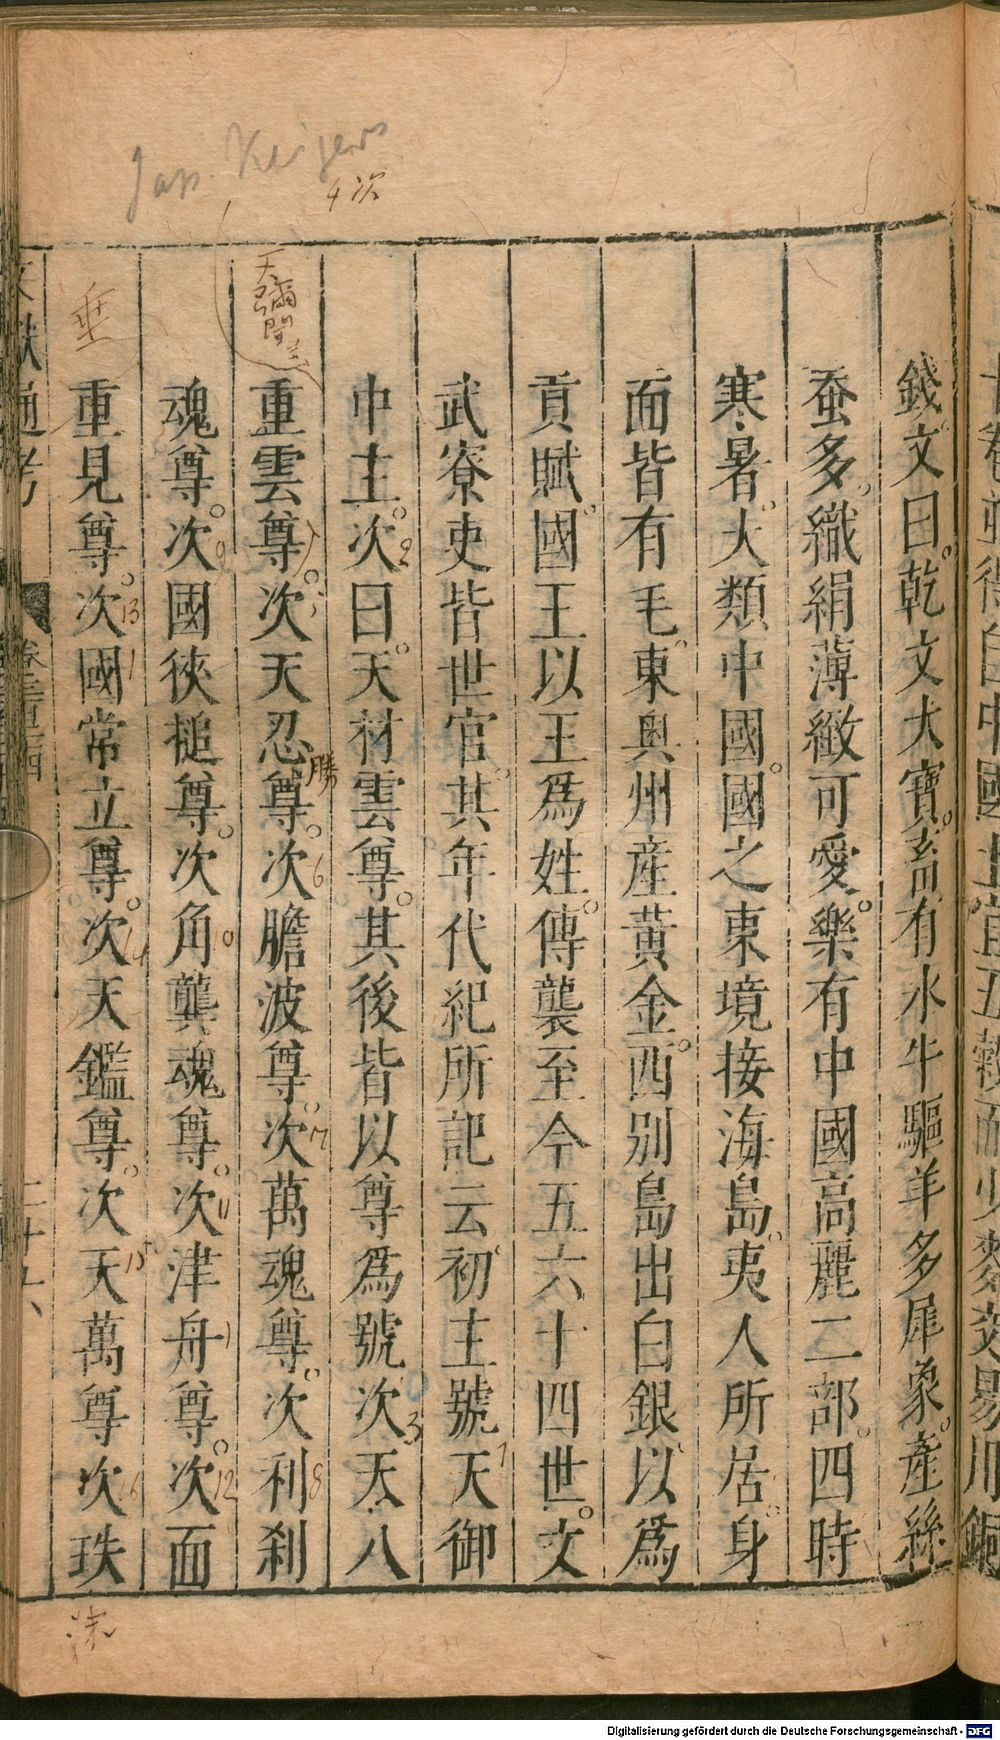 錢文曰乾文大寶畜有水牛驅羊多犀象產絲
蚕多織絹薄緻可愛樂有中國高麗二部四時
寒暑大類中國國之東境接海島夷人所居身
面皆有毛東奧州產黃金西別島出白銀以爲
貢賦國王以王爲姓傳襲至今五六十四世文
武寮吏皆世官其年代紀所記云初主號天御
中主次曰天材雲尊其後皆以尊爲號次天八
重雲尊次天忍尊次贍波尊次萬魂尊次利剎
魂尊次國狹槌尊次角龔魂尊次津舟尊次面
重見尊次國常立尊次天鑑尊次天萬尊次珠
Jap.
4次
天彌聞
垂
勝
沫
2
3
6
8
9
10
11
12
13
14
15
16
文獻通考
二十六
Digitalisierung gefördert durch die Deutsche Forschungsgemeinschaft - DFG